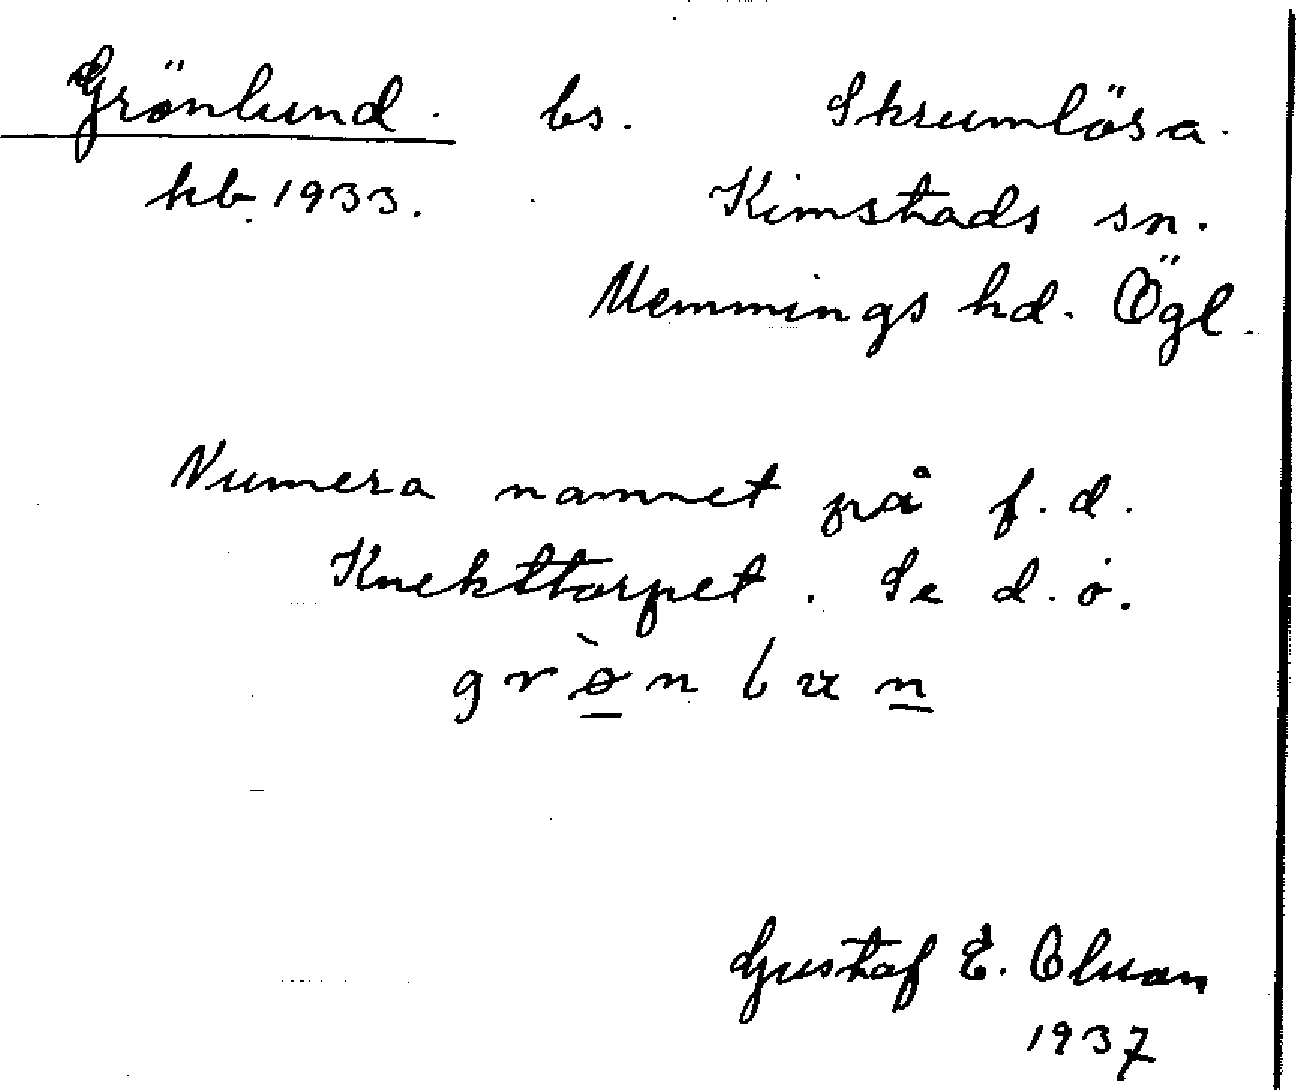 Grönlund. bs. Skrumlösa.
kb 1933. Kimstads sn.
Memmings hd. Ögl.
Numera namnet på f.d.
Knekttorpet. Se d.o.
Gustaf E.
1937